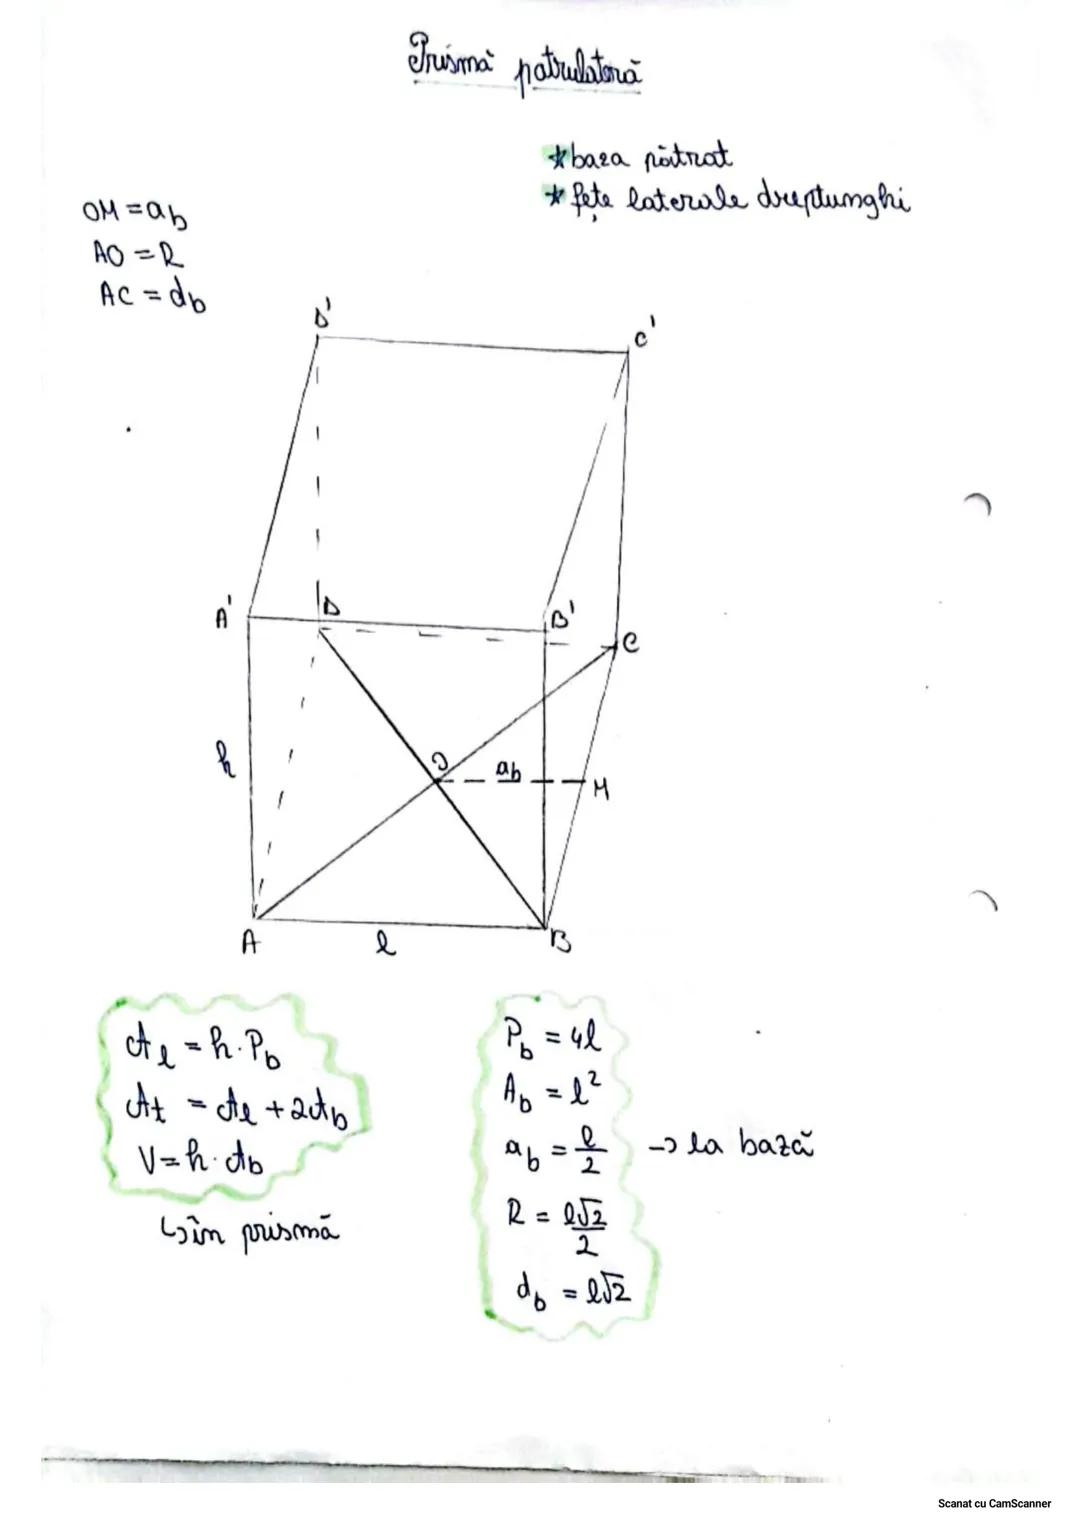 Prismă patrulateră
*baza pătrat
* fețe laterale dreptunghi
OM = ab
AO = R
AC = db
D'
C'
A'
D
B'
C
h
O
ab
M
A
l
B
Al = h · Pb
At = Al + 2Ab
V = h · Ab
↳ în prismă
Pb = 4l
Ab = l²
ab = l/2 -> la bază
R = l√2/2
db = l√2
Scanat cu CamScanner